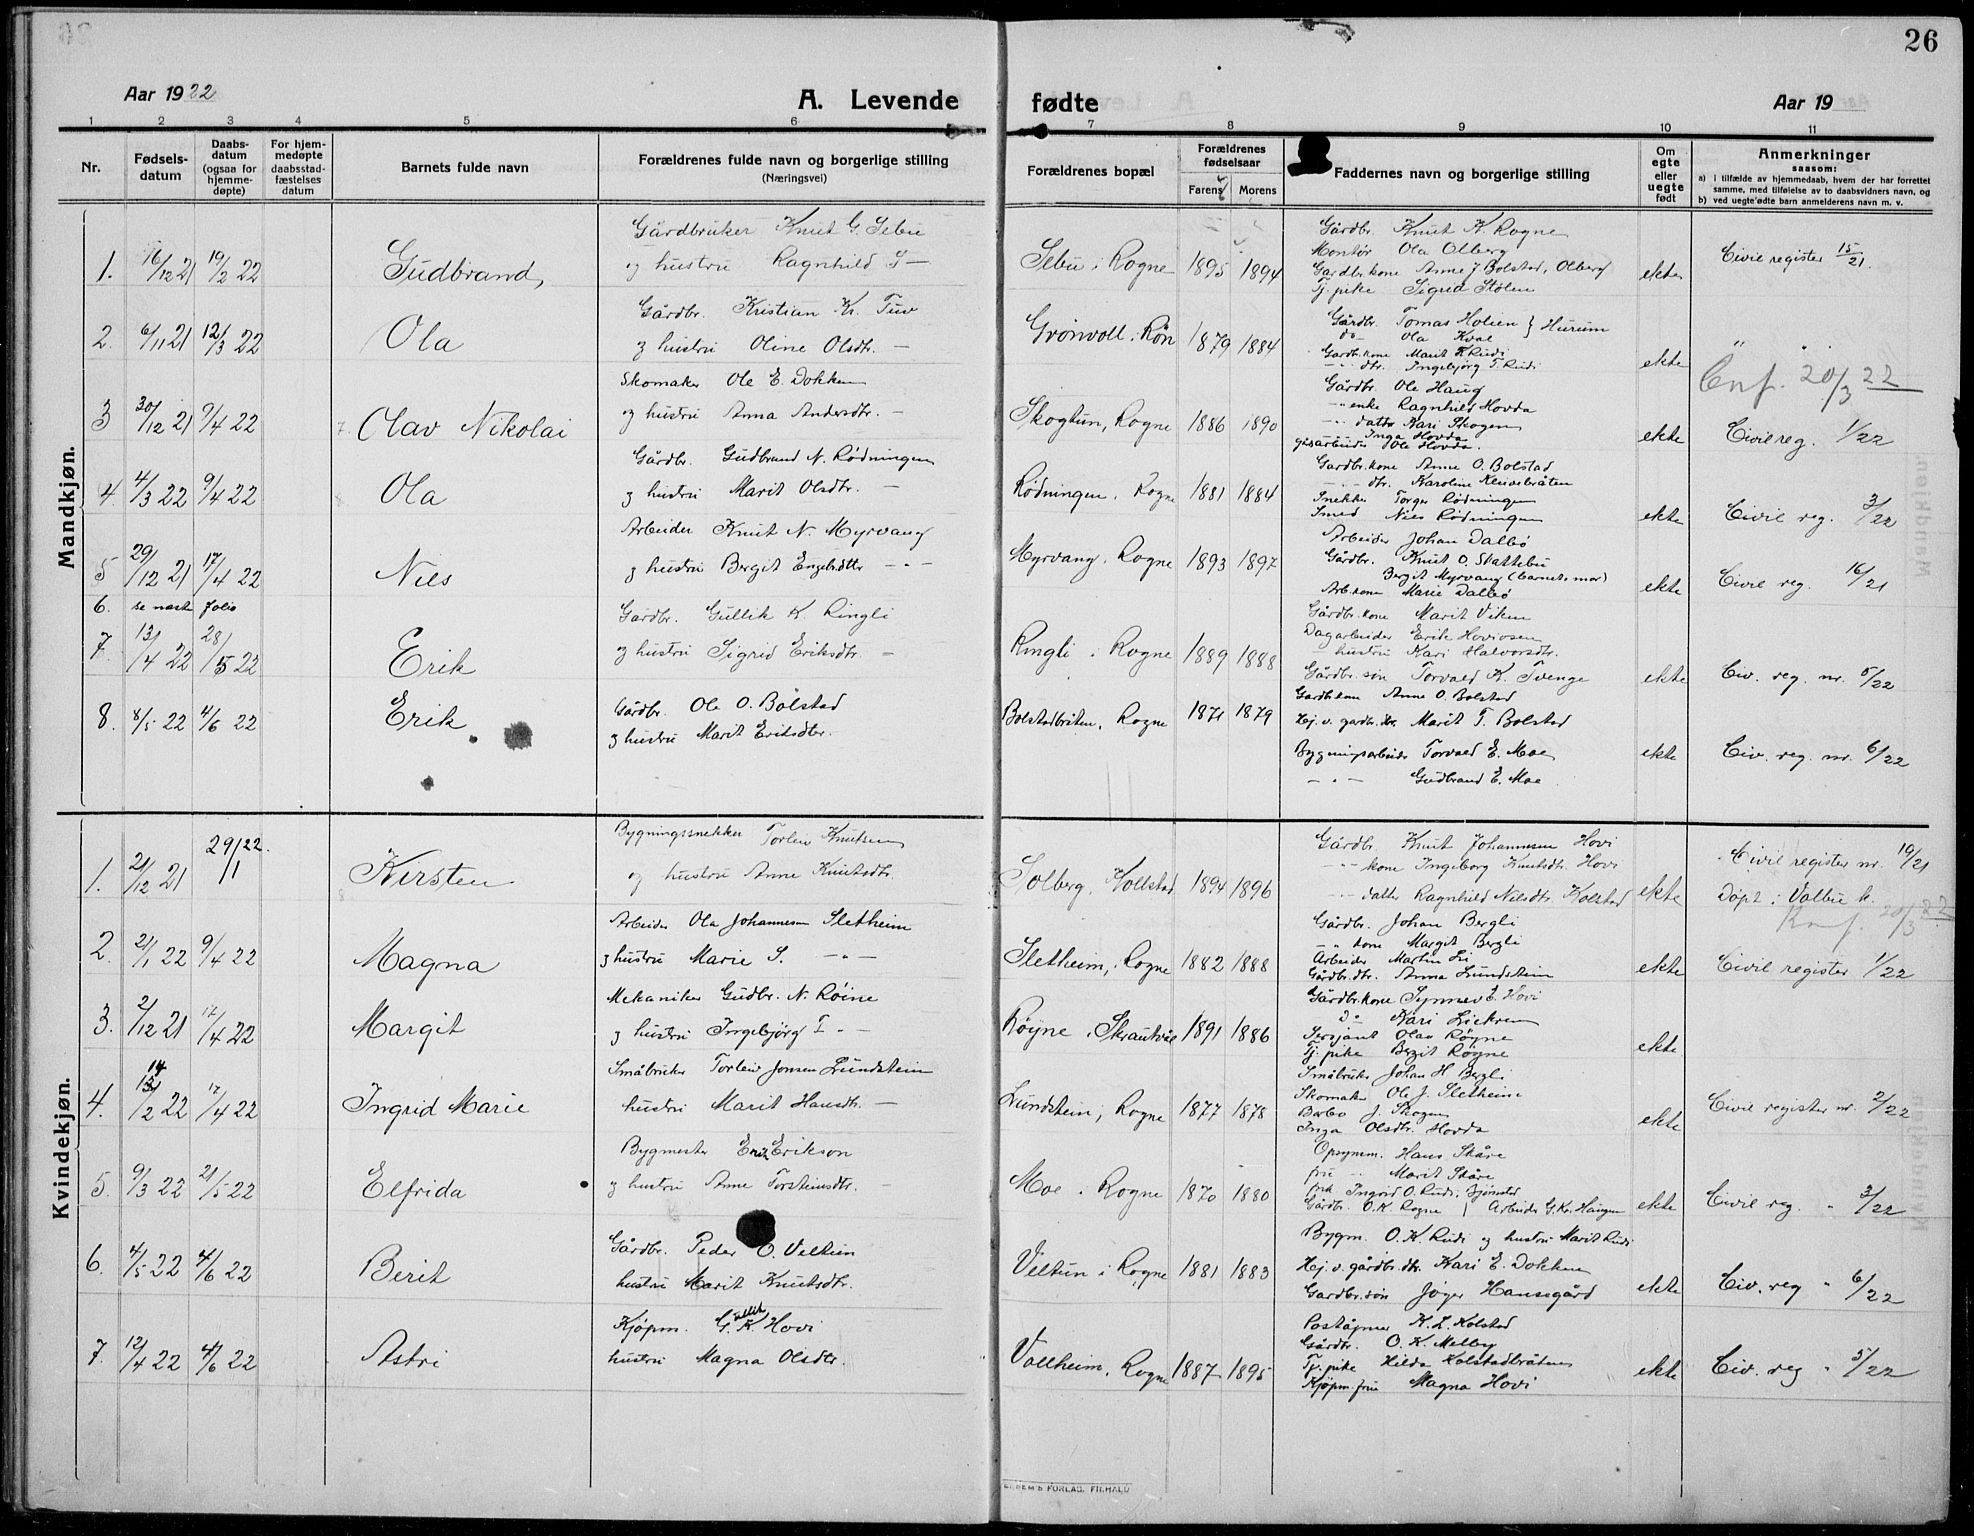 26
Aar 1922
A. Levende fødte
Aar 19
1 2 3 4 5 6 7 8 9 10 11
Nr.
Fødsels-datum
Daabs-datum (ogsaa for hjemme-døpte)
For hjem-medøpte daabsstad-fæstelses datum
Barnets fulde navn
Forældrenes fulde navn og borgerlige stilling (Næringsvei)
Forældrenes bopæl
Forældrenes fødselsaar
Farens Morens
Faddernes navn og borgerlige stilling
Om egte eller uegte født
Anmerkninger
saasom:
a) i tilfælde av hjemmedaab, hvem der har forrettet samme, med tilføielse av to daabsvidners navn, og
b) ved uegte fødte barn anmelderens navn m. v.
Mandkjøn.
1. 16/12 21 19/2 22 Gudbrand
Gårdbruker Knut G. Sebu
og hustru Ragnhild S —
Sebu i Rogne 1895 1894
Gårdbr. Knut K. Rogne
Montør Ola Olberg
Gardbr.kone Anne J. Bolstad, Olberg
Tj.pike Sigrid Stølen
ekte
Civil register 15/21.
2. 6/11 21 12/3 22 Ola
Gårdbr. Kristian Kr. Tuv
og hustru Oline Olsdtr. —
Grønvoll i Røn 1879 1884
Gårdbr. Tomas Holien } Hurum
do Ola Kvale
Gardbr.kone Marit T. Rudi
— " — dtr. Ingebjørg T. Rudi
ekte
" "
Cnf. 20/3 22
3 30/12 21 9/4 22 Olav Nikolai
Skomaker Ole E. Dokken
og hustru Anna Andersdtr. —
Skogtun, Rogne 1886 1890
Gårdbr. Ole Haug
— " enke Ragnhild Hovda
— " — datter Kari Skogen
Inga Hovda
Ole Hovda.
ekte
Civil reg. 1/22
4 4/3 22 9/4 22 Ola
Gårdbr. Gudbrand N. Rødningen
og hustru Marit Olsdtr. —
Rødningen, Rogne 1881 1884
Gardbr.kone Anne O. Bolstad
— " — dtr. Karoline Kleivebråten
Snekker Torger Rødningen
Smed Nils Rødningen
ekte
Civil reg. 3/22
5 29/12 21 17/4 22 Nils
Arbeider Knut N. Myrvang
og hustru Bergit Engebrdtr — " —
Myrvang, Rogne 1893 1897
Arbeider Johan Dalbø
Gårdbr. Knut O. Skattebu
Bergit Myrvang (barnets mor)
Arb.kone Marie Dalbø
ekte
Civil reg. 16/21
6. se neste folio
7. 13/4 22 28/5 22 Erik
Gardbr. Gullik K. Ringli
og hustru Sigrid Eriksdtr. —
Ringli i Rogne 1889 1888
Gårdbr.kone Marit Viken
Dagarbeider Erik Hoviosen
— hustru Kari Halvorsdtr.
Gårdbr.søn Torvald K. Tvenge
ekte
Civ. reg. nr. 5/22
8. 8/5 22 4/6 22 Erik
Gårdbr. Ole O. Bolstad
og hustru Marit Eriksdtr.
Bolstadbråten, Rogne 1871 1879
Gardbr.kone Anne O. Bolstad
Hj. v. gardbr.dtr. Marit T. Bolstad
Bygningsarbeider Torvald E. Moe
— " — Gudbrand E. Moe
ekte
Civ. reg. nr. 6/22
Kvindekjøn.
1. 21/12 21 29/1 22. Kirsten
Bygningssnekker Torleiv Knutsen
og hustru Anne Knutsdtr.
Solberg, Kollstad 1894 1896
Gårdbr. Knut Johannesen Hovi
— " — kone Ingeborg Knutsdtr. Hovi
— " datter Ragnhild Nilsdtr. Kolstad
ekte
Civil register nr. 19/21
Døpt i Volbu k.
Konf. 20/3 22
2. 21/1 22 9/4 22 Magna
Arbeider Ola Johannesen Sletheim
og hustru Marie S. — " —
Sletheim, Rogne 1882 1888
Gårdbr. Johan Bergli
— " — kone Margit Bergli
Arbeider Martin Li
Gårdbr.dtr. Anna Lundstein
ekte
Civil register 1/22
3. 2/12 21 17/4 22 Margit
Mekaniker Gudbr. N. Røine
og hustru Ingebjørg I " —
Røyne i Skrautvål 1891 1886
Gårdbr.kone Synnev E. Hovi
do Kari Liekren
Serjant Olav Røyne
Tj.pike Bergit Røyne
ekte
4. 14/2 22 17/4 22 Ingrid Marie
Småbruker Torleiv Jonsen Lundstein
hustru Marit Hansdtr. —
Lundstein, Rogne 1877 1878
Småbruker Johan H Bergli
Skomaker Ole J. Sletheim
Barbo J. Skogen
Inga Olsdtr. Hovda
ekte
Civil register nr. 2/22
5. 9/3 22 21/5 22 Elfrida
Bygmester Erik Erikson
og hustru Anne Torsteinsdtr. —
Moe i Rogne 1870 1880
Opsynsm. Hans Skåre
fru " Marit Skåre
frk Ingrid O. Rudi,
Gårdbr. O.K. Rogne | Arbeider G. Kr. Haugen
ekte
Civil reg. " 3/22
6. 4/5 22 4/6 22 Berit
Gårdbr. Peder O. Veltun
hustru Marit Knutsdtr.
Veltun i Rogne 1881 1883
Bygm. O. K. Rudi og hustru Marit Rudi
Hj. v. gårdbr.dtr. Kari E. Dokken
Gardbr.søn Jøger Hansegård
ekte
Civ. reg " 6/22
7. 12/4 22 4/6 22 Astri
Kjøpm. Gullik K. Hovi
hustru Magna Olsdtr.
Vollheim, Rogne 1887 1895
Poståpner K. L. Kolstad
Gårdbr. O. K. Melby
Tj.pike Hilda Kolstadbråten
Kjøpm.frue Magna Hovi
ekte
Civ. reg " 5/22
FORLAG, FR.HALD